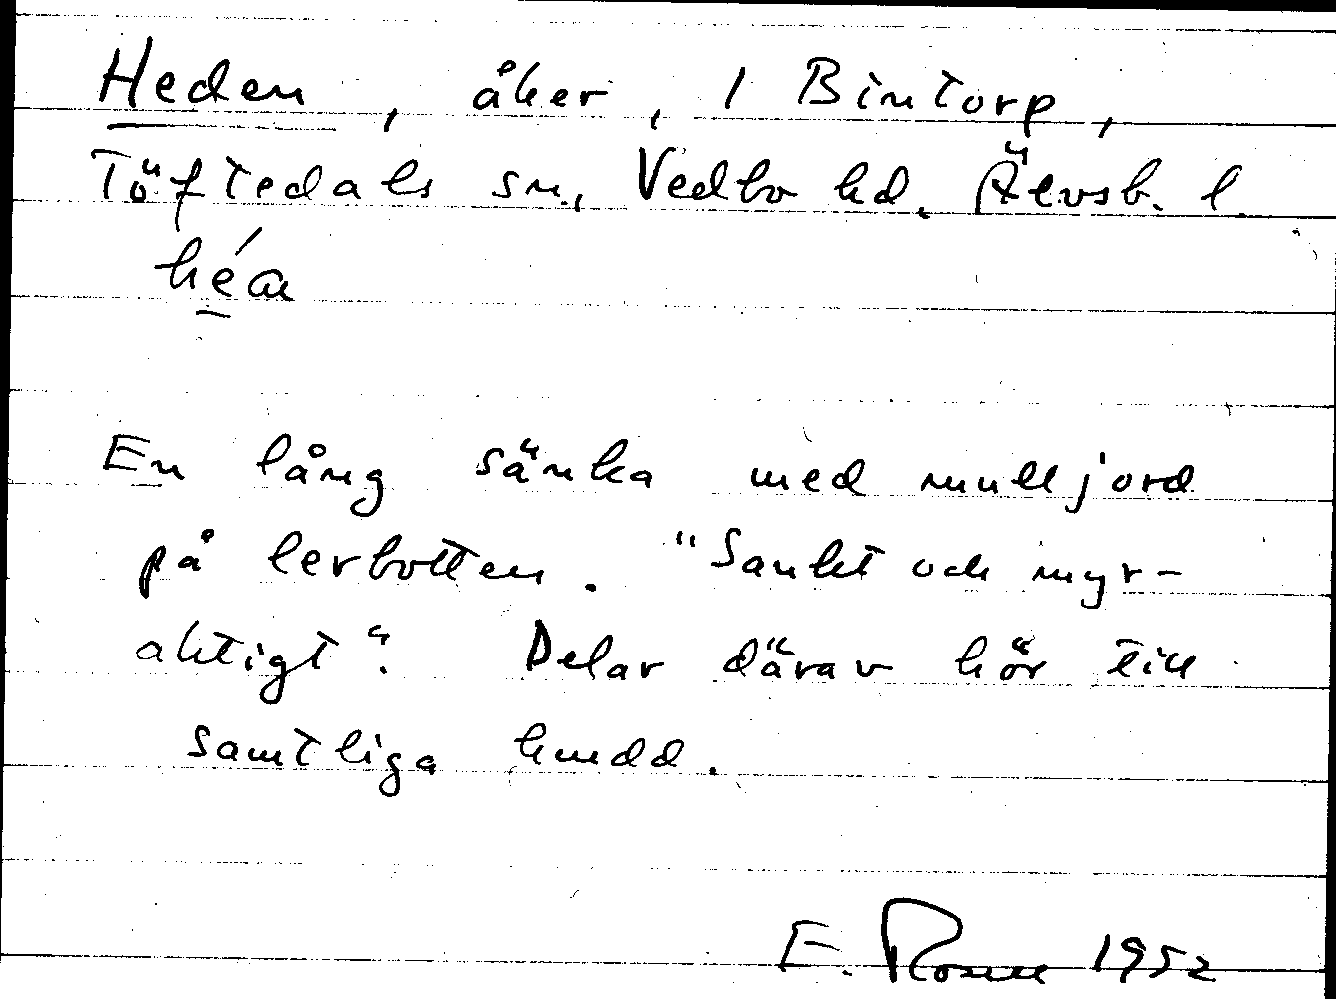 Heden, åker, 1 Bintorp,
Töftedals sn., Vedbo hd. Älvsb. l.
héa
En lång sänka med mulljord
på lerbotten. "Sankt och myr-
aktigt". Delar därav hör till
samtliga hmdd.
E. Rosen 1952